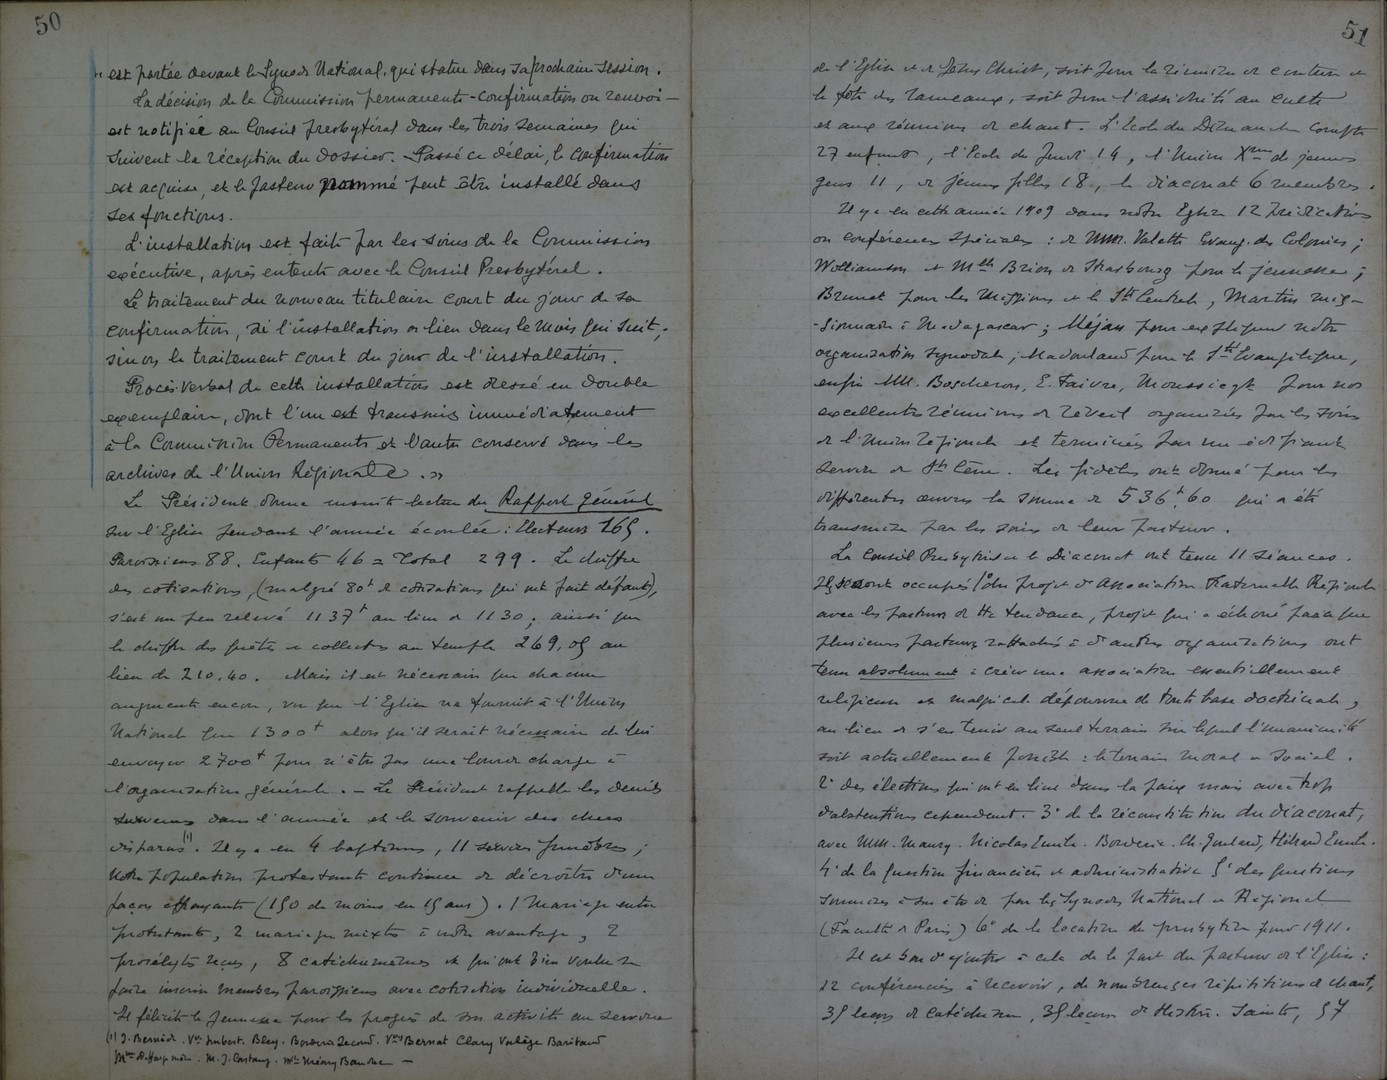 50
est portée devant le Synode National, qui statue dans sa prochaine session.
La décision de la Commission permanente - confirmation ou renvoi -
est notifiée au Conseil presbytéral dans les trois semaines qui
suivent la réception du dossier. Passé ce délai, la confirmation
est acquise, et le pasteur nommé peut être installé dans
ses fonctions.
L'installation est faite par les soins de la Commission
exécutive, après entente avec le Conseil Presbytéral.
Le traitement du nouveau titulaire court du jour de sa
confirmation, si l'installation a lieu dans le mois qui suit;
sinon le traitement court du jour de l'installation.
Procès-verbal de cette installation est dressé en double
exemplaire, dont l'un est transmis immédiatement
à la Commission Permanente et l'autre conservé dans les
archives de l'Union Régionale. »
Le Président donne ensuite lecture du Rapport général
sur l'Eglise pendant l'année écoulée : Electeurs 165.
Paroissiens 88. Enfants 46 = Total 299. Le chiffre
des cotisations, (malgré 80f de cotisations qui ont fait défaut),
s'est un peu relevé 1137f au lieu de 1130; ainsi que
le chiffre des quêtes et collectes au temple 269,05 au
lieu de 210.40. Mais il est nécessaire que chacun
augmente encore, vu que l'Eglise ne fournit à l'Union
Nationale que 1300f alors qu'il serait nécessaire de lui
envoyer 2700f pour n'être pas une lourde charge à
l'organisation générale. - Le Président rappelle les deuils
survenus dans l'année et le souvenir des chers
disparus (1). Il y a eu 4 baptêmes, 11 services funèbres;
notre population protestante continue de décroître d'une
façon effrayante (150 de moins en 15 ans). 1 mariage entre
protestants, 2 mariages mixtes à notre avantage, 2
prosélytes reçus, 8 catéchumènes et qui ont bien voulu se
faire inscrire membres paroissiens avec cotisation individuelle.
Il félicite la jeunesse pour les progrès de son activité au service
(1) J. Bernède. Vve Imbert. Bley. Second. Vve Bernat Clary Baritaud
M. J.
51
de l'Eglise et de Jésus Christ, soit pour la réunion de couture et
la fête des rameaux, soit pour l'assiduité au culte
et aux réunions de chant. L'Ecole du Dimanche compte
27 enfants, l'Ecole du Jeudi 14, l'Union Xnne de jeunes
gens 11, de jeunes filles 18, le diaconat 6 membres.
Il y a eu cette année 1909 dans notre Eglise 12 prédications
ou conférences spéciales : de MM. Valette Evang. des Colonies;
Williamson et Mlle Brion de Strasbourg pour la jeunesse;
Brunet pour les Missions et la Sté Centrale, Martin mis-
-sionnaire à Madagascar; Méjan pour expliquer notre
organisation synodale; pour la Sté Evangélique,
enfin MM. Boscheron, E. Faivre, Moussiegt pour nos
excellentes réunions de réveil organisées par les soins
de l'Union régionale et terminées par un édifiant
service de Ste Cène. Les fidèles ont donné pour les
différentes œuvres la somme de 536f,60 qui a été
transmise par les soins de leur pasteur.
Le Conseil Presbytéral et le Diaconat ont tenu 11 séances.
Ils se sont occupés 1° du projet d'Association Fraternelle Régionale
avec les pasteurs de tte tendance, projet qui a échoué parce que
plusieurs pasteurs rattachés à d'autres organisations ont
tenu absolument à créer une association essentiellement
religieuse et malgré cela dépourvue de toute base doctrinale,
au lieu de s'en tenir au seul terrain sur lequel l'unanimité
soit actuellement possible : le terrain moral et social.
2° des élections qui ont eu lieu dans la paix mais avec trop
d'abstentions cependant. 3° de la réconstitution du diaconat,
avec MM. Maury. Nicolas Emile. Borderie. Ch. Hébrard Emile.
4° de la question financière et administrative 5° des questions
soumises à son étude par les Synodes National et Régional
(Faculté de Paris) 6° de la location du presbytère pour 1911.
Il est bon d'ajouter à cela de la part du pasteur de l'Eglise :
12 conférenciers à recevoir, de nombreuses répétitions de chant,
35 leçons de catéchisme, 35 leçons de Histre. Sainte, 57